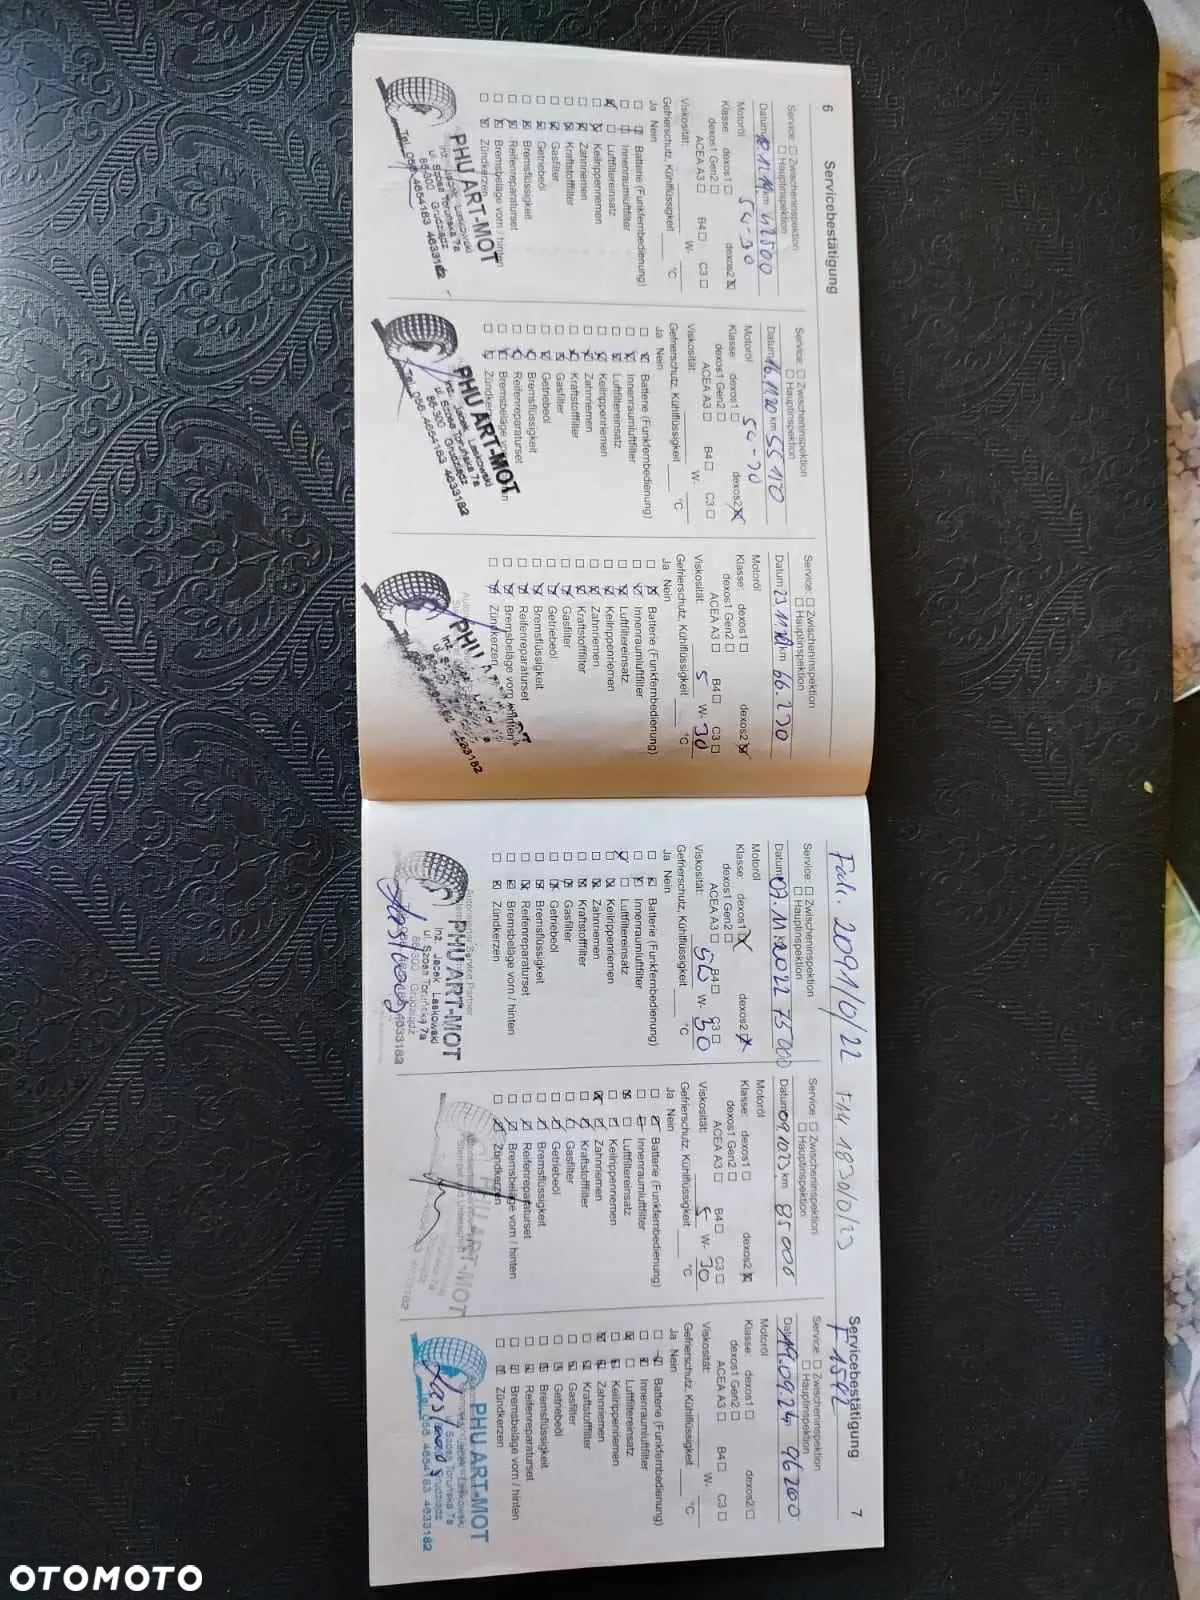 6 Servicebestätigung
Service: ☐ Zwischeninspektion
☐ Hauptinspektion
Datum 12.11.19 km 42500
Motoröl
Klasse: dexos1 ☐ dexos2 ☒
dexos1 Gen2 ☐
ACEA A3 ☐ B4 ☐ C3 ☐
Viskosität: W-
Gefrierschutz, Kühlflüssigkeit °C
Ja Nein
Batterie (Funkfernbedienung)
Innenraumluftfilter
Luftfiltereinsatz
Keilrippenriemen
Zahnriemen
Kraftstofffilter
Gasfilter
Getriebeöl
Bremsflüssigkeit
Reifenreparaturset
Bremsbeläge vorn / hinten
Zündkerzen
PHU ART-MOT
ul. Szosa Toruńska 7a
Grudziądz
Tel. 056 4654163 4633182
Service: ☐ Zwischeninspektion
☐ Hauptinspektion
Datum 16.11.20 km 55170
Motoröl
Klasse: dexos1 ☐ dexos2 ☒
dexos1 Gen2 ☐
ACEA A3 ☐ B4 ☐ C3 ☐
Viskosität: W-
Gefrierschutz, Kühlflüssigkeit °C
Ja Nein
Batterie (Funkfernbedienung)
Innenraumluftfilter
Luftfiltereinsatz
Keilrippenriemen
Zahnriemen
Kraftstofffilter
Gasfilter
Getriebeöl
Bremsflüssigkeit
Reifenreparaturset
Bremsbeläge vorn
Zündkerzen
PHU ART-MOT
inż. Jacek Laskowski
ul. Szosa Toruńska 7a
86-300 Grudziądz
Tel. 056 4654163 4633182
Service: ☐ Zwischeninspektion
☐ Hauptinspektion
Datum 23 11 km 66.230
Motoröl
Klasse: dexos1 ☐ dexos2 ☒
dexos1 Gen2 ☐
ACEA A3 ☐ B4 ☐ C3 ☐
Viskosität: 5 W- 30
Gefrierschutz, Kühlflüssigkeit °C
Ja Nein
Batterie (Funkfernbedienung)
Innenraumluftfilter
Luftfiltereinsatz
Keilrippenriemen
Zahnriemen
Kraftstofffilter
Gasfilter
Getriebeöl
Bremsflüssigkeit
Reifenreparaturset
Bremsbeläge vorn / hinten
Zündkerzen
PHU
4633182
Servicebestätigung 7
Fak. 2091/0/22 FA4 1830/0/23 F 1542
Service: ☐ Zwischeninspektion
☐ Hauptinspektion
Datum 07.11.2022 75000
Motoröl
Klasse: dexos1 ☒ dexos2 ☒
dexos1 Gen2 ☐
ACEA A3 ☐ B4 ☐ C3 ☐
Viskosität: W- 30
Gefrierschutz, Kühlflüssigkeit °C
Ja Nein
Batterie (Funkfernbedienung)
Innenraumluftfilter
Luftfiltereinsatz
Keilrippenriemen
Zahnriemen
Kraftstofffilter
Gasfilter
Getriebeöl
Bremsflüssigkeit
Reifenreparaturset
Bremsbeläge vorn / hinten
Zündkerzen
PHU ART-MOT
inż. Jacek Laskowski
ul. Szosa Toruńska 7a
86-300 Grudziądz
4633182
Service: ☐ Zwischeninspektion
☐ Hauptinspektion
Datum 09.10.23 km 85006
Motoröl
Klasse: dexos1 ☐ dexos2 ☒
dexos1 Gen2 ☐
ACEA A3 ☐ B4 ☐ C3 ☐
Viskosität: 5 W- 30
Gefrierschutz, Kühlflüssigkeit °C
Ja Nein
Batterie (Funkfernbedienung)
Innenraumluftfilter
Luftfiltereinsatz
Keilrippenriemen
Zahnriemen
Kraftstofffilter
Gasfilter
Getriebeöl
Bremsflüssigkeit
Reifenreparaturset
Bremsbeläge vorn / hinten
Zündkerzen
PHU ART-MOT
Service: ☐ Zwischeninspektion
☐ Hauptinspektion
19.09.24 96200
Motoröl
Klasse: dexos1 ☐ dexos2 ☐
dexos1 Gen2 ☐
ACEA A3 ☐ B4 ☐ C3 ☐
Viskosität: W-
Gefrierschutz, Kühlflüssigkeit °C
Ja Nein
Batterie (Funkfernbedienung)
Innenraumluftfilter
Luftfiltereinsatz
Keilrippenriemen
Zahnriemen
Kraftstofffilter
Gasfilter
Getriebeöl
Bremsflüssigkeit
Reifenreparaturset
Bremsbeläge vorn / hinten
Zündkerzen
PHU ART-MOT
Tel. 056 4654163 4633182
OTOMOTO